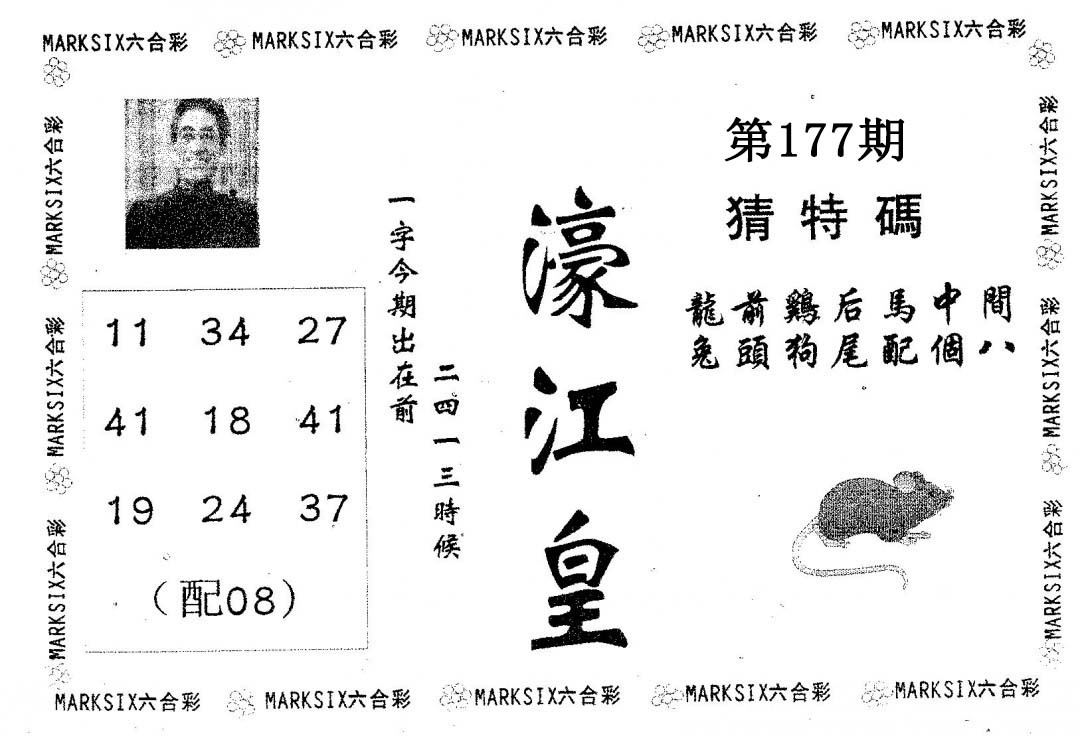 MARKSIX六合彩 MARKSIX六合彩 MARKSIX六合彩 MARKSIX六合彩 MARKSIX六合彩
MARKSIX六合彩
MARKSIX六合彩
MARKSIX六合彩
11 34 27
41 18 41
19 24 37
(配08)
一字今期出在前
二四一三時候
濠江皇
第177期
猜特碼
龍前鷄后馬中間
兔頭狗尾配個八
MARKSIX六合彩
MARKSIX六合彩
MARKSIX六合彩
MARKSIX六合彩 MARKSIX六合彩 MARKSIX六合彩 MARKSIX六合彩 MARKSIX六合彩